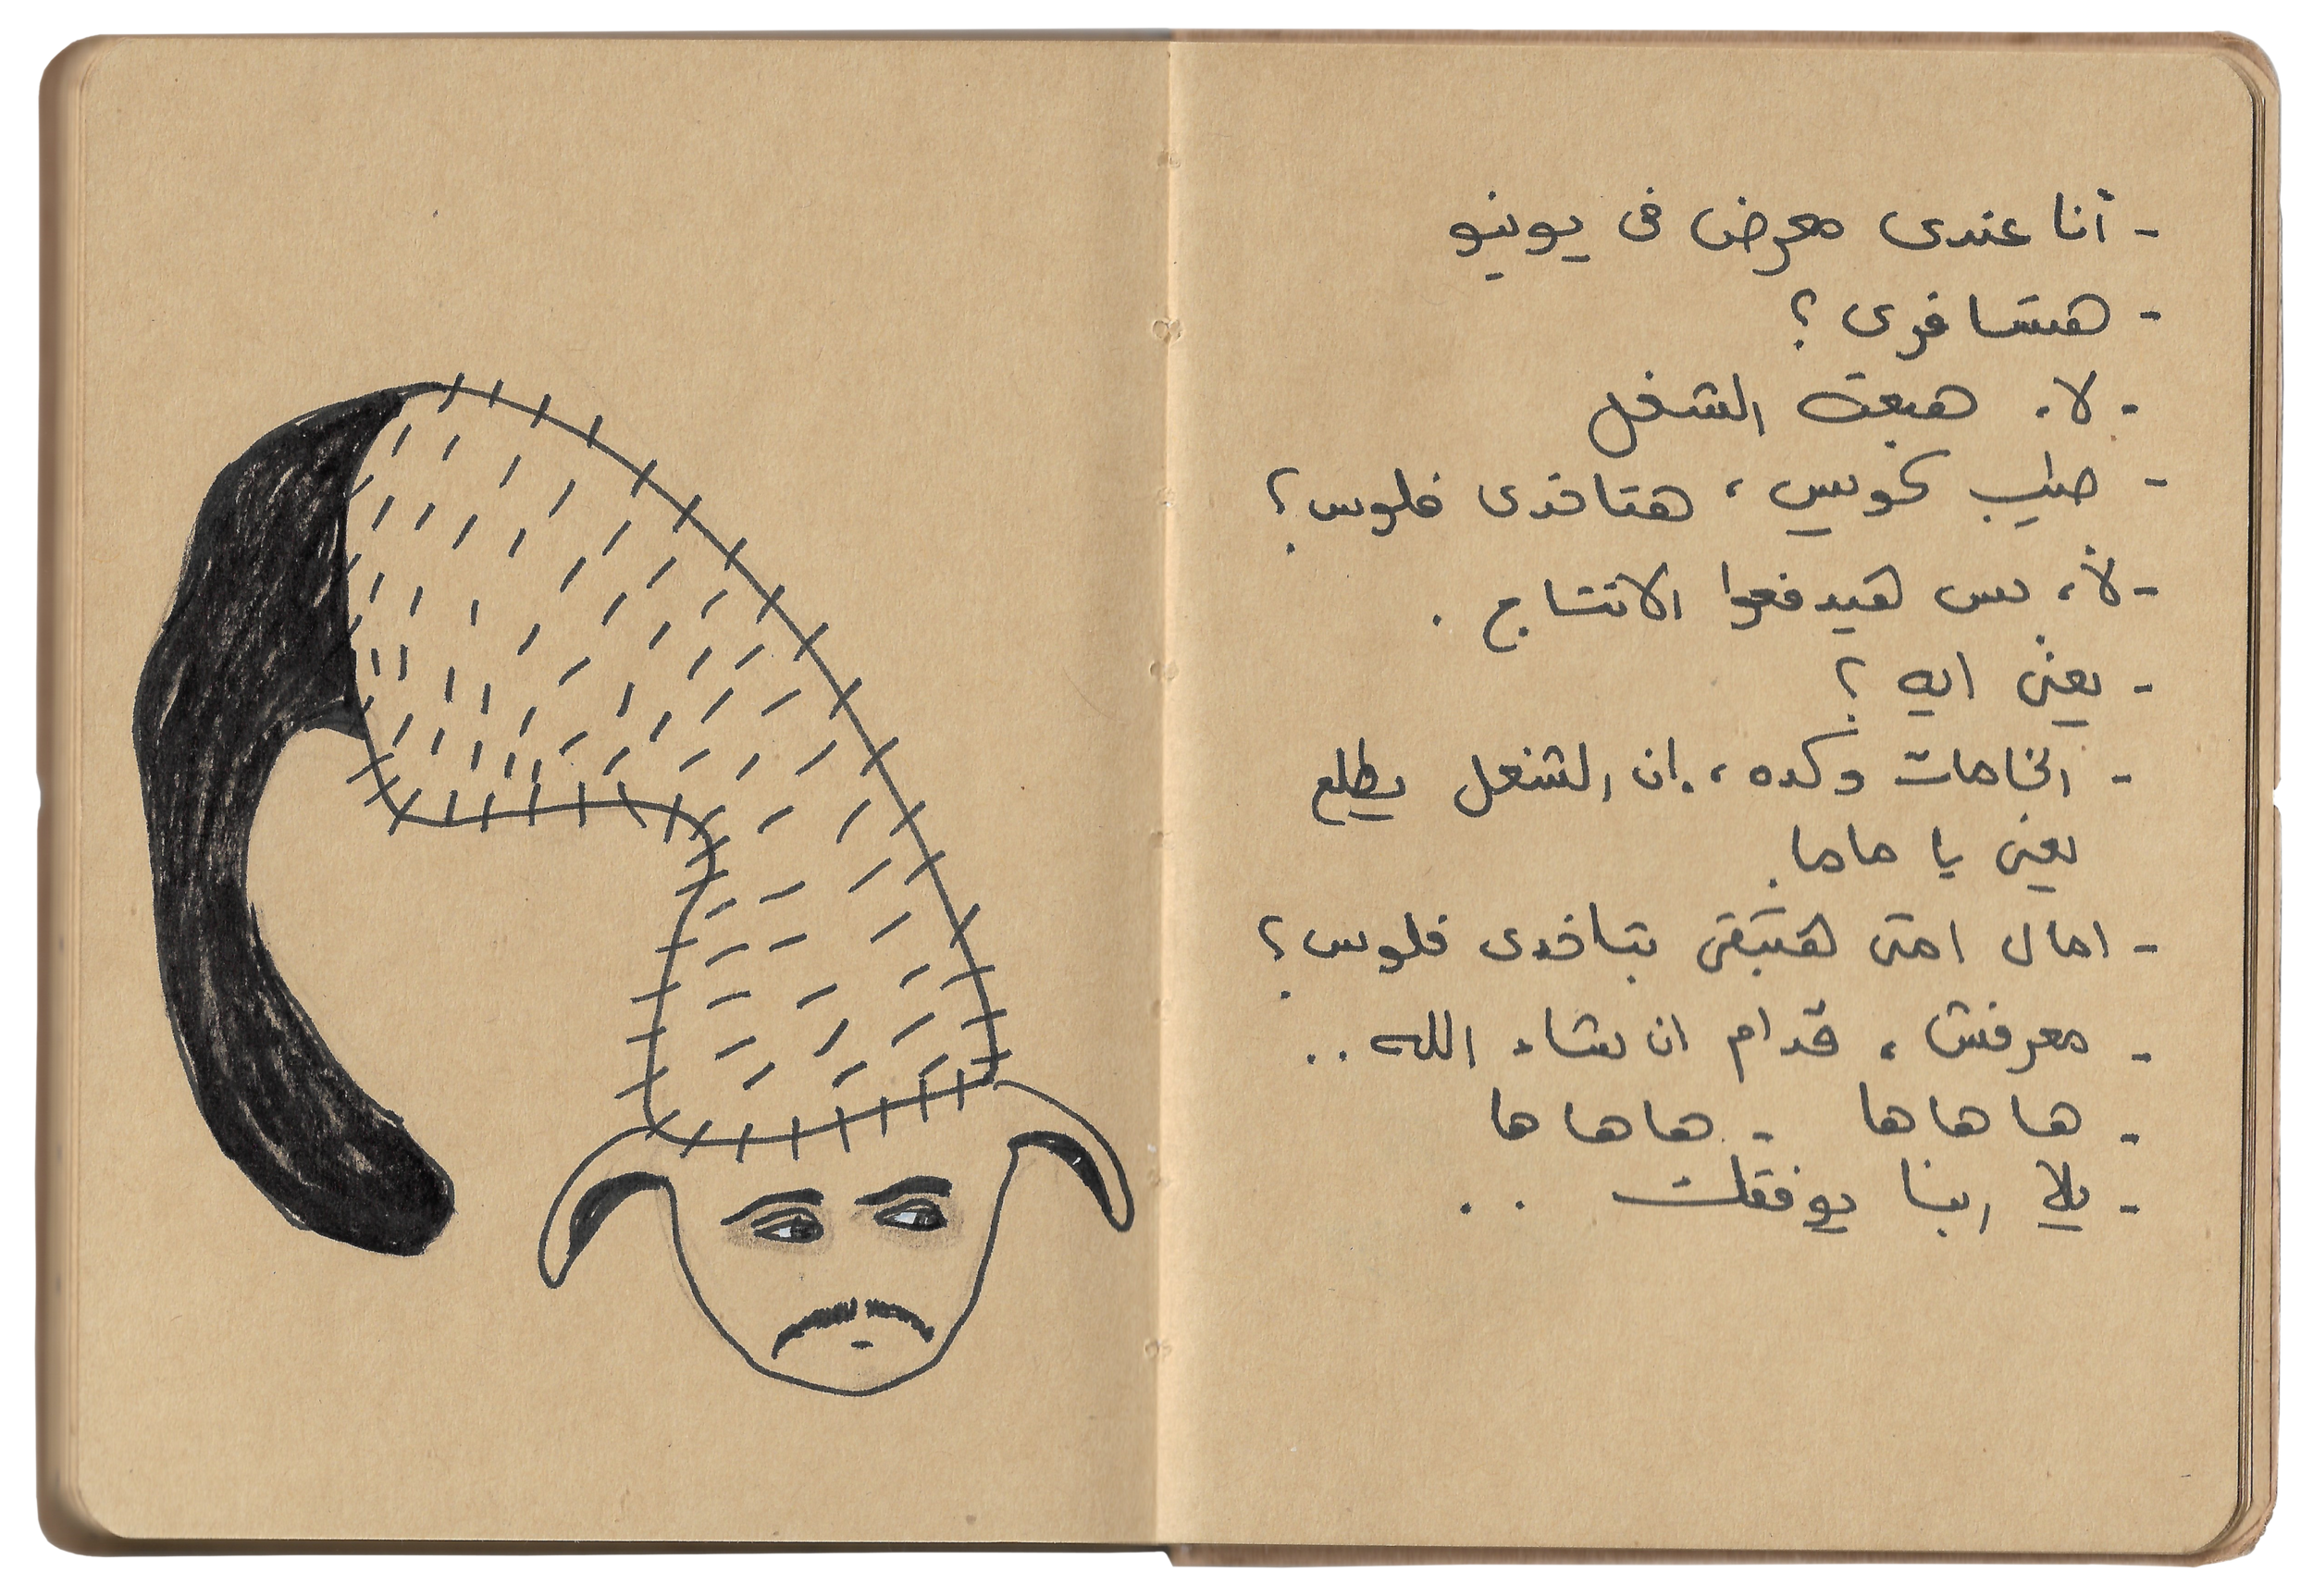 - أنا عندى معرض فى يونيو
- هتسافرى ؟
- لا. هبعت الشغل
- طيب كويس، هتاخدى فلوس؟
- لأ، بس هيدفعوا الانتاج .
- يعنى ايه ؟
- الخامات وكده، إن الشغل يطلع
يعنى يا ماما.
- امال امتى هتبقى بتاخدى فلوس؟
- معرفش، قدام ان شاء الله..
- ها ها ها - ها ها ها
- يلا ربنا يوفقك ..